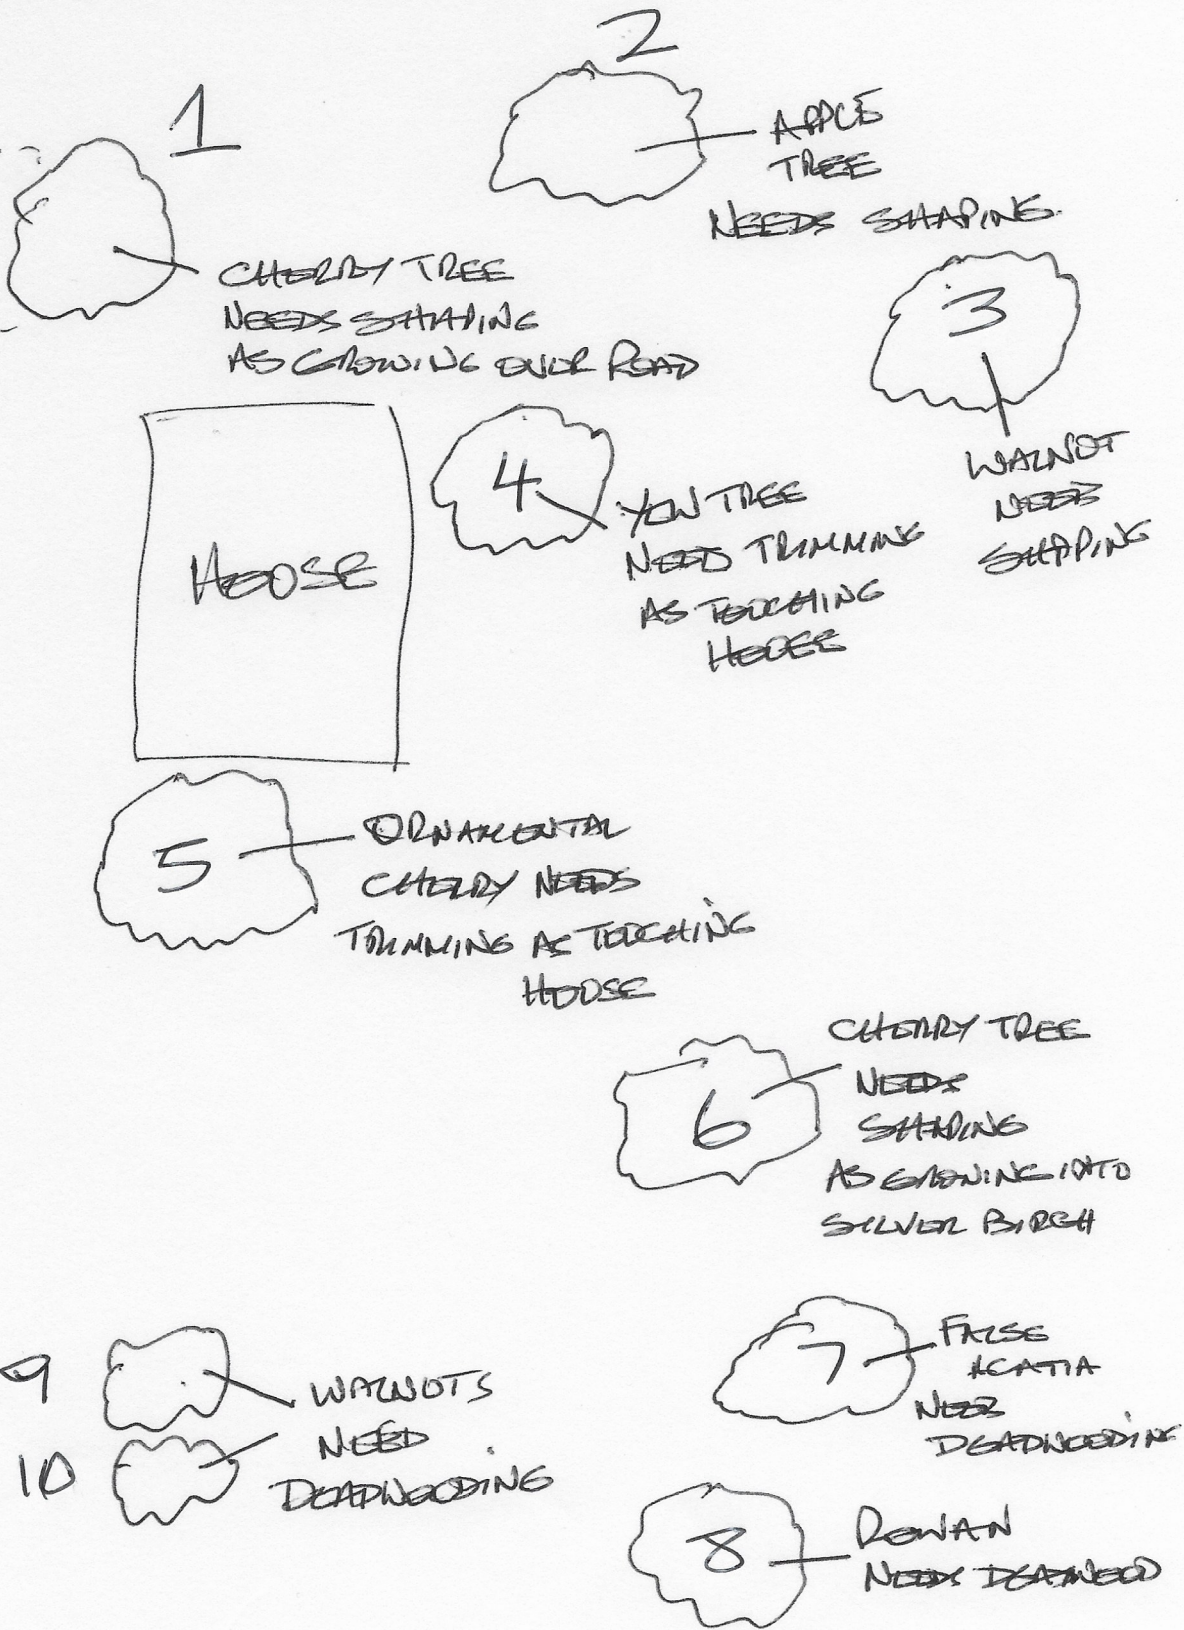 1
CHERRY TREE
NEEDS SHAPING
AS GROWING OVER ROAD
2
APPLE
TREE
NEEDS SHAPING
3
WALNUT
NEEDS
SHAPING
HOUSE
4
YEW TREE
NEED TRIMMING
AS TOUCHING
HOUSE
5
ORNAMENTAL
CHERRY NEEDS
TRIMMING AS TOUCHING
HOUSE
6
CHERRY TREE
NEEDS
SHAPING
AS GROWING INTO
SILVER BIRCH
7
FALSE
ACATIA
NEED
DEADWOODING
8
ROWAN
NEEDS DEADWOOD
9
10
WALNUTS
NEED
DEADWOODING